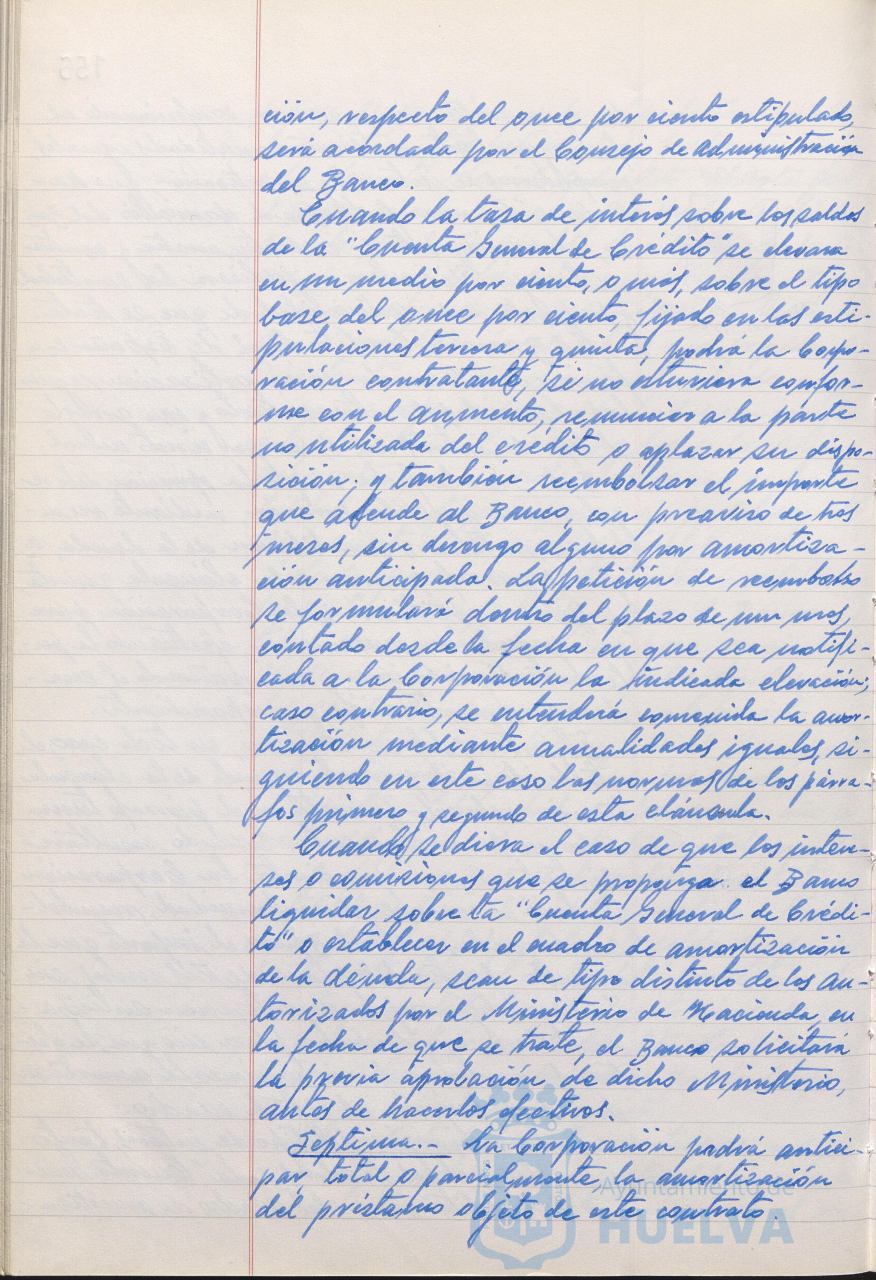 ción, respecto del once por ciento estipulado,
será acordada por el Consejo de Administración
del Banco.
Cuando la tasa de interés sobre los saldos
de la "Cuenta General de Crédito" se elevara
en un medio por ciento, o más, sobre el tipo
base del once por ciento, fijado en las esti-
pulaciones tercera y quinta, podrá la Corpo-
ración contratante, si no estuviera confor-
me con el aumento, renunciar a la parte
no utilizada del crédito o aplazar su dispo-
sición; y también reembolsar el importe
que adeude al Banco, con preaviso de tres
meses, sin devengo alguno por amortiza-
ción anticipada. La petición de reembolso
se formulará dentro del plazo de un mes,
contado desde la fecha en que sea notifi-
cada a la Corporación la indicada elevación;
caso contrario, se entenderá convenida la amor-
tización mediante anualidades iguales, si-
guiendo en este caso las normas de los párra-
fos primero y segundo de esta cláusula.
Cuando se diera el caso de que los intere-
ses o comisiones que se proponga el Banco
liquidar sobre la "Cuenta General de Crédi-
to" o establecer en el cuadro de amortización
de la deuda, sean de tipo distinto de los au-
torizados por el Ministerio de Hacienda en
la fecha de que se trate, el Banco solicitará
la previa aprobación de dicho Ministerio,
antes de hacerlos efectivos.
Septima.- La Corporación podrá antici-
par total o parcialmente la amortización
del préstamo objeto de este contrato.
Ayuntamiento de
HUELVA